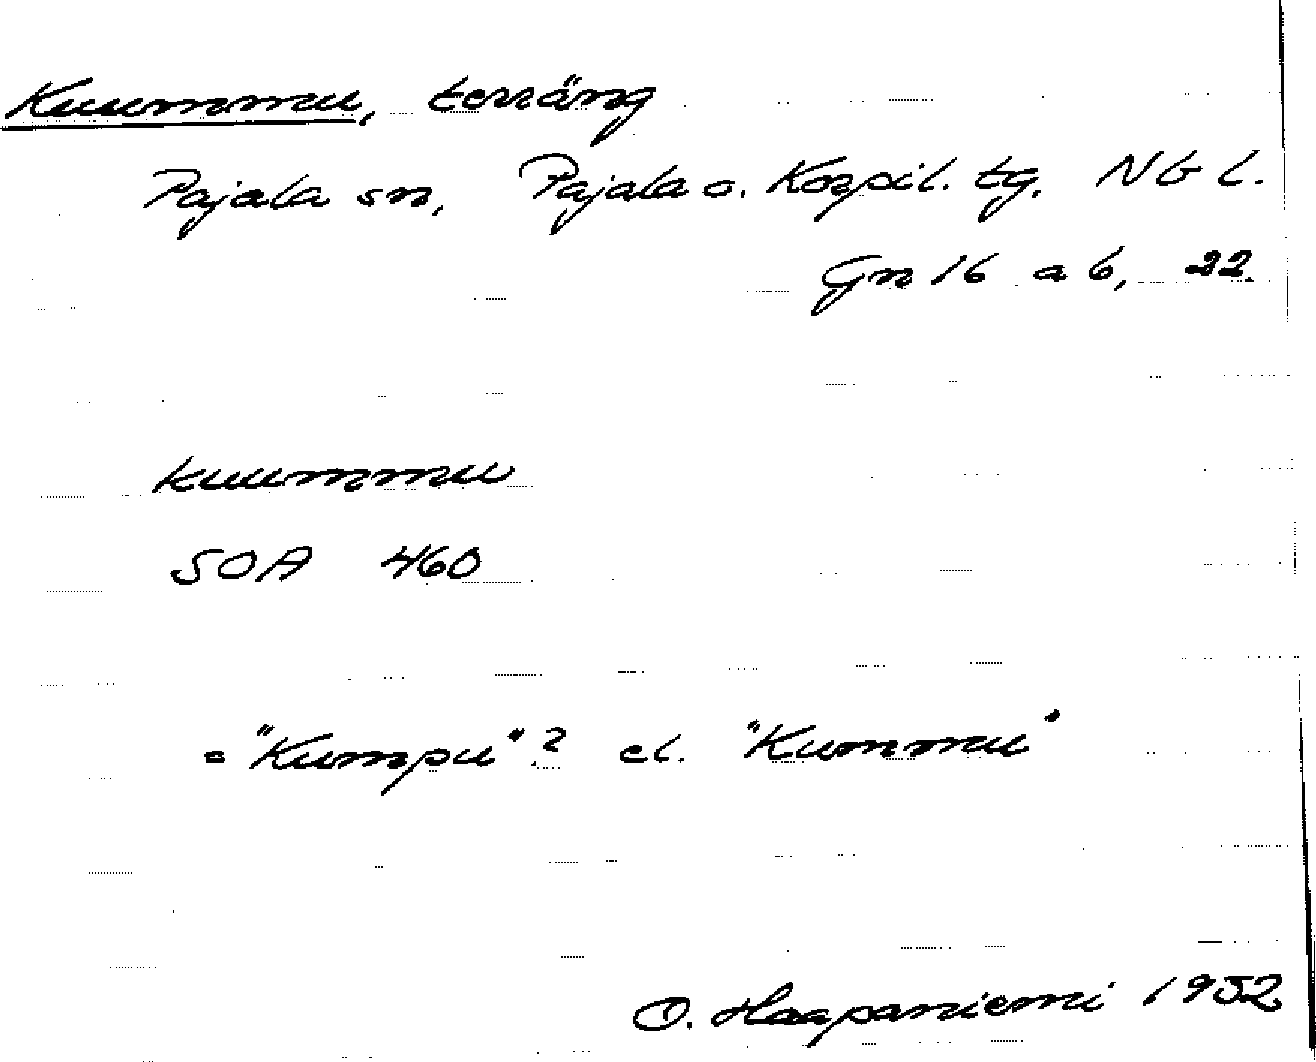 Kuummu, terräng
Pajala sn, Pajala o. Korpil. tg. Nb l.
Gn 16 a b, 22.
kuummu
SOA 460
= "Kumpu"? el. "Kummu"
O. Haapaniemi 1952